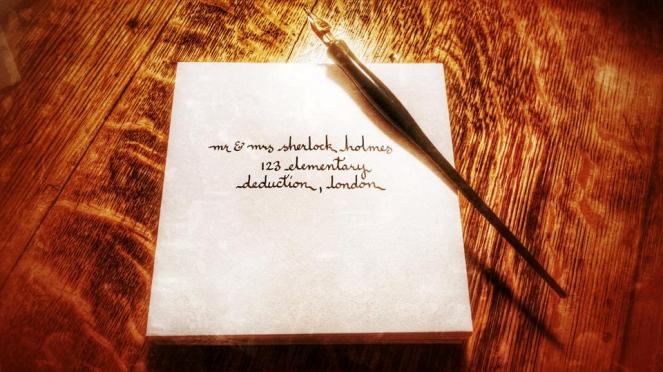 mr & mrs sherlock holmes
123 elementary
deduction, london